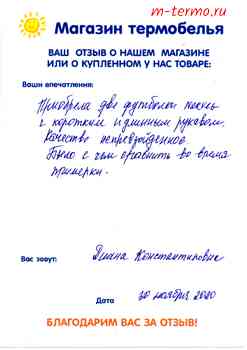 m-termo.ru
Магазин термобелья
ВАШ ОТЗЫВ О НАШЕМ МАГАЗИНЕ
ИЛИ О КУПЛЕННОМ У НАС ТОВАРЕ:
Ваши впечатления:
Приобрела две футболки
с коротким и длинным рукавом.
Качество непревзойденное.
Было с чем сравнить во время
примерки.
Вас зовут:
Константиновна
Дата
20 ноября 2020
БЛАГОДАРИМ ВАС ЗА ОТЗЫВ!